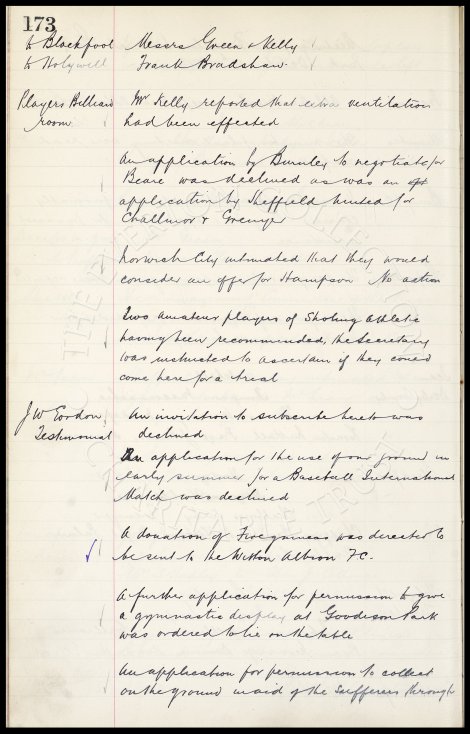 173
to Blackpool Messrs Green & Kelly
to Holywell Frank Bradshaw.
Players Billiard Mr Kelly reported that extra ventilation
room had been effected
An application by Burnley to negotiate for
Beare was declined as was an
application by Sheffield United for
Challinor & Grenyer
Norwich City intimated that they would
consider an offer for Hampson No action
Two amateur players of Sholing Athletic
having been recommended, the Secretary
was instructed to ascertain if they could
come here for a trial
J W Eordon An invitation to subscribe hereto was
Testimonial declined
An application for the use of our ground in
early summer for a Baseball International
Match was declined
A donation of Five guineas was directed to
be sent to the Witton Albion FC.
A further application for permission to give
a gymnastic display at Goodison Park
was ordered to lie on the table
An application for permission to collect
on the ground in aid of the sufferers through